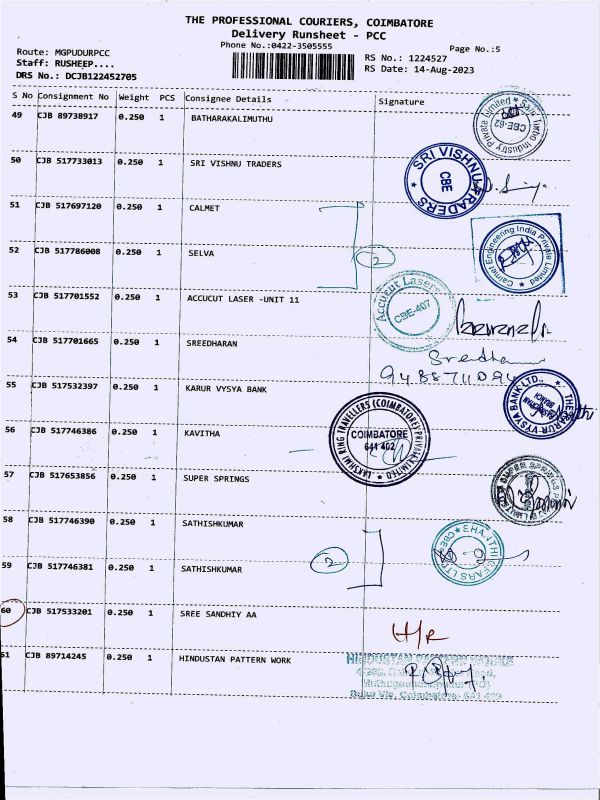 THE PROFESSIONAL COURIERS, COIMBATORE
Delivery Runsheet - PCC
Phone No.:0422-3505555
Page No.:5
Route: MGPUDURPCC
Staff: RUSHEEP....
DRS No.: DCJB122452705
RS No.: 1224527
RS Date: 14-Aug-2023
S No Consignment No Weight PCS Consignee Details Signature
49 CJB 89738917 0.250 1 BATHARAKALIMUTHU
CBE-62
50 CJB 517733013 0.250 1 SRI VISHNU TRADERS
SRI VISHNU TRADERS
CBE
51 CJB 517697120 0.250 1 CALMET
Calmet Engineering India Private Limited
52 CJB 517786008 0.250 1 SELVA
2
53 CJB 517701552 0.250 1 ACCUCUT LASER -UNIT 11
Accucut Laser
CBE-407
54 CJB 517701665 0.250 1 SREEDHARAN
Sreedha
55 CJB 517532397 0.250 1 KARUR VYSYA BANK
THE KARUR VYSYA BANK LTD.,
56 CJB 517746386 0.250 1 KAVITHA
LAKSHMI RING TRAVELLERS (COIMBATORE) PRIVATE LIMITED
COIMBATORE
641 402
57 CJB 517653856 0.250 1 SUPER SPRINGS
58 CJB 517746390 0.250 1 SATHISHKUMAR
2
59 CJB 517746381 0.250 1 SATHISHKUMAR
60 CJB 517533201 0.250 1 SREE SANDHIY AA
H/R
61 CJB 89714245 0.250 1 HINDUSTAN PATTERN WORK